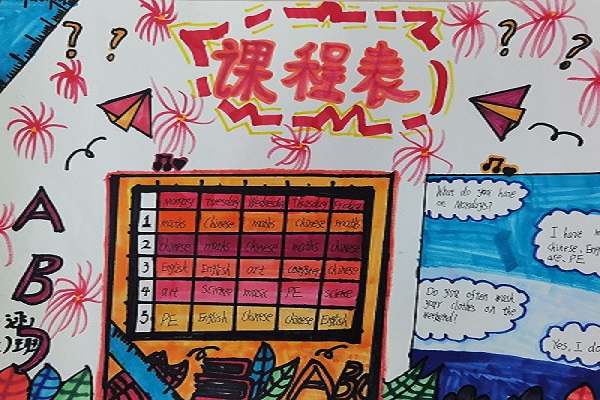 ? ? 课程表 ? ?
A
B
Monday Tuesday Wednesday Thursday Friday
1 maths Chinese maths Chinese maths
2 Chinese maths Chinese maths Chinese
3 English English art computer Chinese
4 art science music PE science
5 PE English Chinese Chinese English
ABC
What do you have
on Mondays?
I have
Chinese, Eng
are PE
Do you often wash
your clothes on the
weekend?
Yes, I do